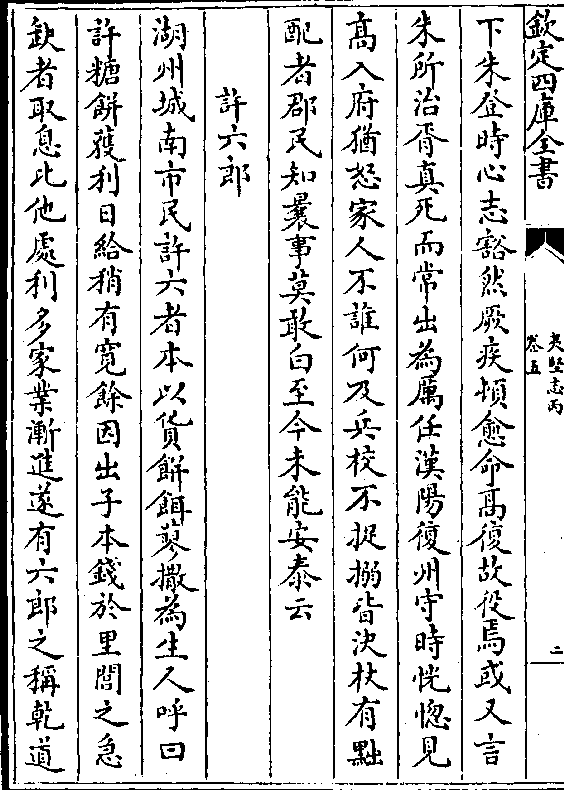 欽定四庫全書
夷堅志丙
卷五
二
下朱登時心志豁然厥疾頓愈命高復故役焉或又言
朱所治胥真死而常出為厲任漢陽復州守時恍惚見
高入府猶怒家人不誰何及兵校不捉搦皆決杖有黥
配者郡民知曩事莫敢白至今未能安泰云
許六郎
湖州城南市民許六者本以貨餅餌蓼撒為生人呼曰
許糖餅獲利日給稍有寛餘因出子本錢於里閭之急
缺者取息比他處利多家業漸進遂有六郎之稱乾道